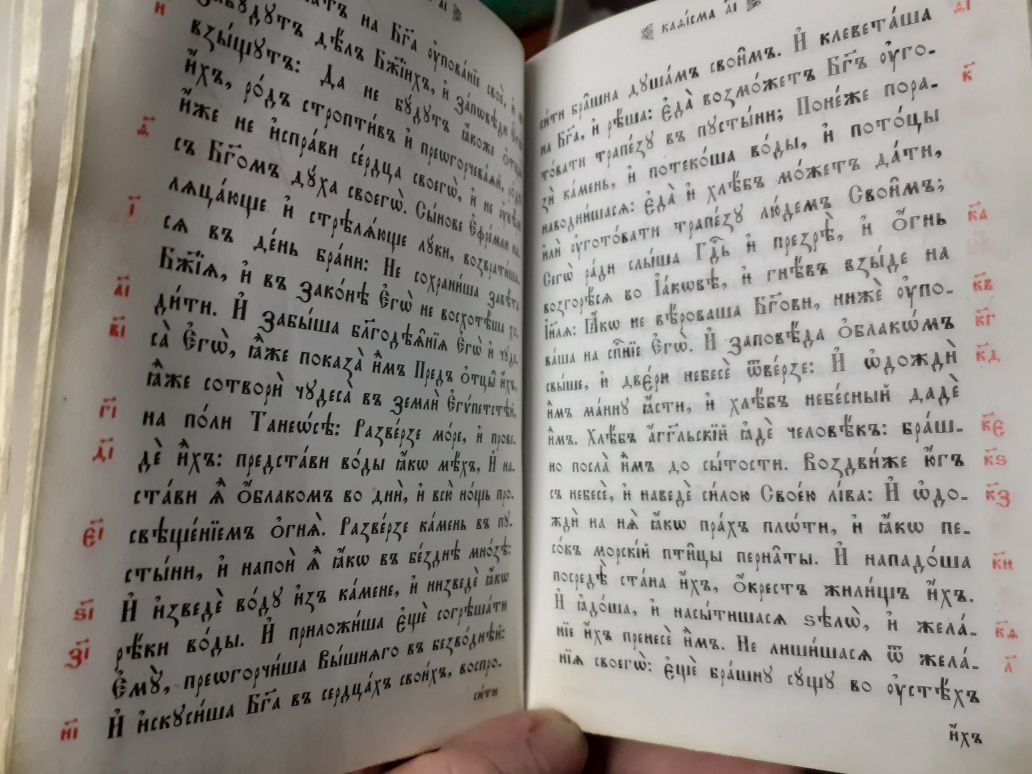 аі
положатъ на Бг҃а ѹ҆пова́нїе своѐ, и҆ не
забꙋ́дꙋтъ дѣ́лъ Бж҃їихъ, и҆ за́пѡвѣди Е҆гѡ̀
взы́щꙋтъ: Да не бꙋ́дꙋтъ ꙗ҆́коже ѻ҆тцы̀
и҆́хъ, ро́дъ стропти́въ и҆ преѡгорчева́ѧй, ро́дъ
и҆́же не и҆спра́ви се́рдца своегѡ̀, и҆ не ѹ҆вѣ́ри
съ Бг҃омъ дꙋ́ха своегѡ̀. Сы́нове Е҆фре́мли на-
лѧца́юще и҆ стрѣлѧ́юще лꙋ́ки, возврати́шасѧ
въ де́нь бра́ни: Не сохрани́ша завѣ́та
Бж҃їѧ, и҆ въ зако́нѣ Е҆гѡ̀ не восхотѣ́ша хо-
ди́ти. И҆ забы́ша бл҃годѣѧ̑нїѧ Е҆гѡ̀ и҆ чꙋдеса̀
Е҆гѡ̀, ꙗ҆̀же показа̀ и҆̀мъ Предъ ѻ҆тцы̑ и҆́хъ,
ꙗ҆̀же сотворѝ чꙋдеса̀ въ землѝ Е҆гѵ́петстѣй,
на по́ли Танеѡ́сѣ: Разве́рзе мо́ре, и҆ прове-
дѐ и҆̀хъ: предста́ви во́ды ꙗ҆́кѡ мѣ́хъ, И҆ на-
ста́ви ѧ҆̀ ѻ҆́блакомъ во днѝ, и҆ всю̀ но́щь про-
свѣще́нїемъ ѻ҆гнѧ̀. Разве́рзе ка́мень въ пꙋ-
сты́ни, и҆ напоѝ ѧ҆̀ ꙗ҆́кѡ въ бе́зднѣ мно́зѣ:
И҆ и҆зведѐ во́дꙋ и҆зъ ка́мене, и҆ низведѐ ꙗ҆́кѡ
рѣ́ки во́ды. И҆ приложи́ша є҆щѐ согрѣша́ти
Е҆мꙋ̀, преѡгорчи́ша Вы́шнѧго въ безво́днѣй:
И҆ и҆скꙋси́ша Бг҃а въ сердца́хъ свои́хъ, воспро-
си́ти
и҃
д҃
і҃
а҃і
в҃і
г҃і
д҃і
є҃і
ѕ҃і
з҃і
и҃і
каѳі́сма а҃і
си́ти бра̑шна дꙋша́мъ свои̑мъ. И҆ клевета́ша
на Бг҃а, и҆ рѣ́ша: Е҆да̀ возмо́жетъ Бг҃ъ ѹ҆го-
то́вати трапе́зꙋ въ пꙋсты́ни; Поне́же пора-
зѝ ка́мень, и҆ потеко́ша во́ды, и҆ пото́цы
наводни́шасѧ: Е҆да̀ и҆ хлѣ́бъ мо́жетъ да́ти,
и҆лѝ ѹ҆гото́вати трапе́зꙋ лю́демъ Свои̑мъ;
Сегѡ̀ ра́ди слы́ша Гд҃ь и҆ презрѣ̀, и҆ ѻ҆́гнь
возгорѣ́сѧ во І҆а́кѡвѣ, и҆ гнѣ́въ взы́де на
І҆и҃лѧ: Ꙗ҆́кѡ не вѣ́роваша Бг҃ови, нижѐ ѹ҆по-
ва́ша на сп҃нїе Е҆гѡ̀. И҆ заповѣ́да ѻ҆блакѡ́мъ
свы́ше, и҆ две́ри небесѐ ѿве́рзе: И҆ ѡ҆дождѝ
и҆̀мъ ма́ннꙋ ꙗ҆́сти, и҆ хлѣ́бъ небе́сный дадѐ
и҆̀мъ. Хлѣ́бъ а҆́гг҃льскїй ꙗ҆дѐ человѣ́къ: бра́ш-
но посла̀ и҆̀мъ до сы́тости. Воздви́же ю҆́гъ
съ небесѐ, и҆ наведѐ си́лою Свое́ю лі́ва: И҆ ѡ҆до-
ждѝ на нѧ̀ ꙗ҆́кѡ пра́хъ плѡ́ти, и҆ ꙗ҆́кѡ пе-
со́къ морскі́й пти̑цы перна̑ты. И҆ нападо́ша
посредѣ̀ ста́на и҆́хъ, ѻ҆́крестъ жили́щъ и҆́хъ.
И҆ ꙗ҆до́ша, и҆ насы́тишасѧ ѕѣлѡ̀, и҆ жела́-
нїе и҆́хъ принесѐ и҆̀мъ. Не лиши́шасѧ ѿ жела́-
нїѧ своегѡ̀: є҆щѐ бра́шнꙋ сꙋ́щꙋ во ѹ҆стѣ́хъ
и҆́хъ
к҃
к҃а
к҃в
к҃г
к҃д
к҃є
к҃ѕ
к҃з
к҃и
к҃ѳ
л҃